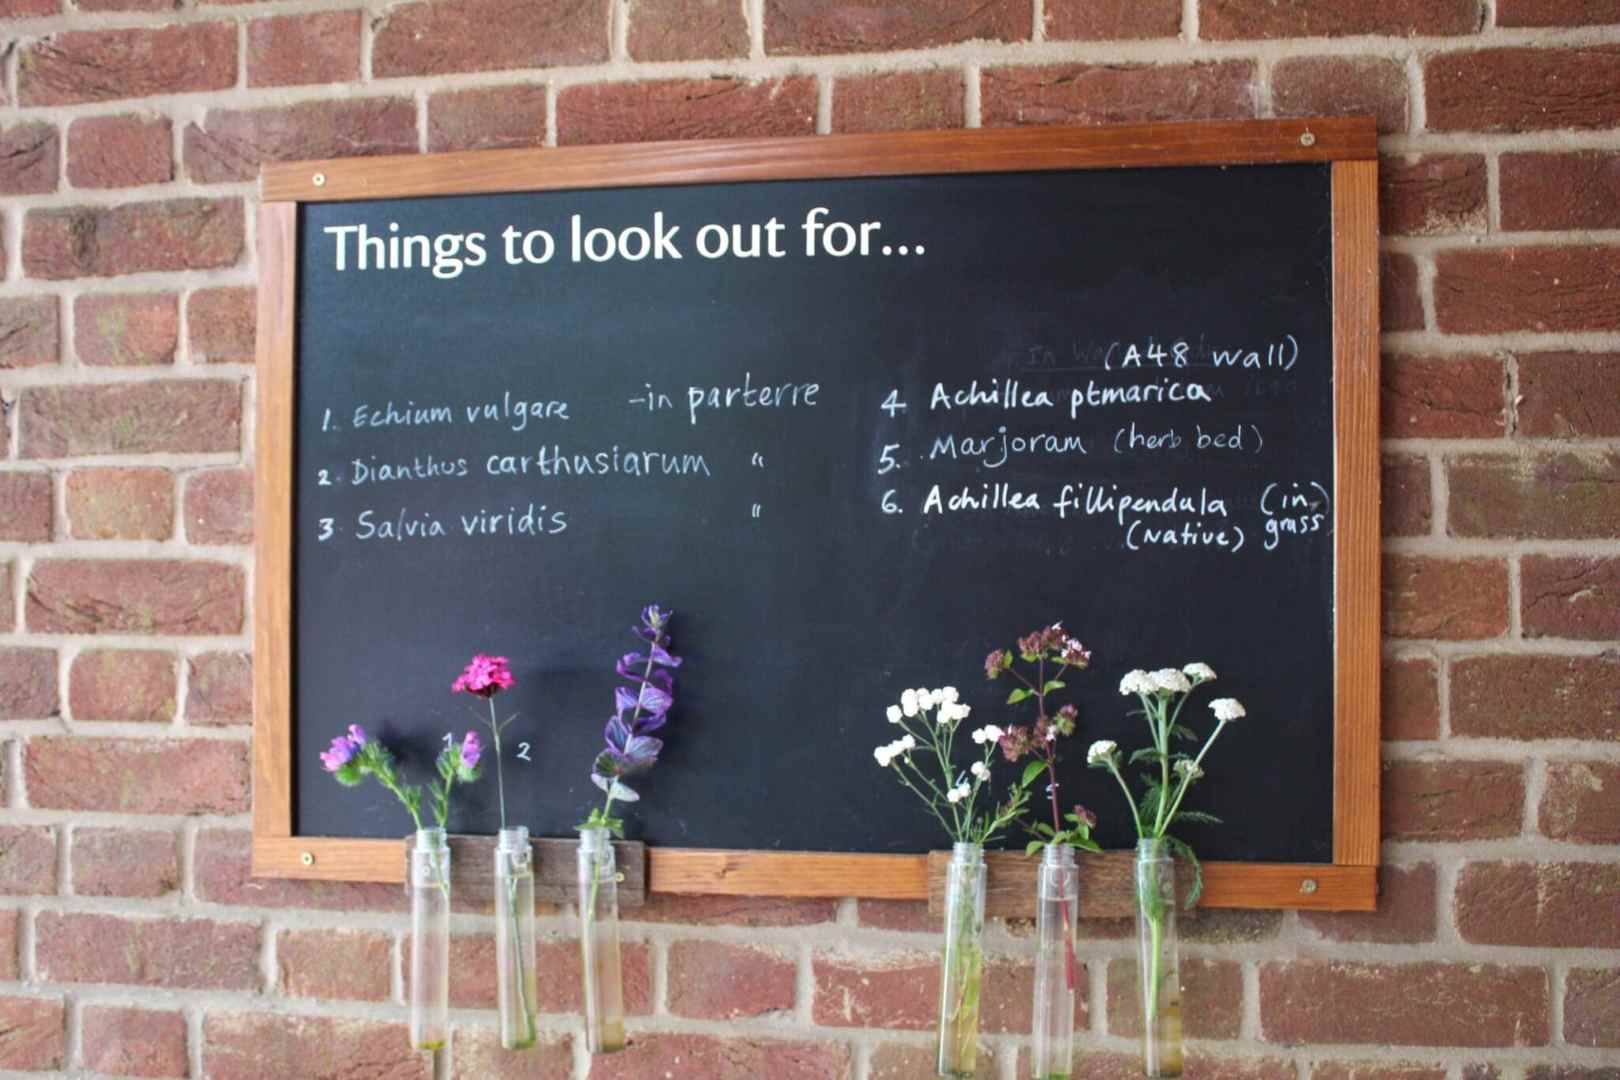 Things to look out for...
1. Echium vulgare -in parterre
2. Dianthus carthusiarum "
3. Salvia viridis "
(A48 wall)
4. Achillea ptmarica
5. Marjoram (herb bed)
6. Achillea fillipendula (in
(native) grass)
2